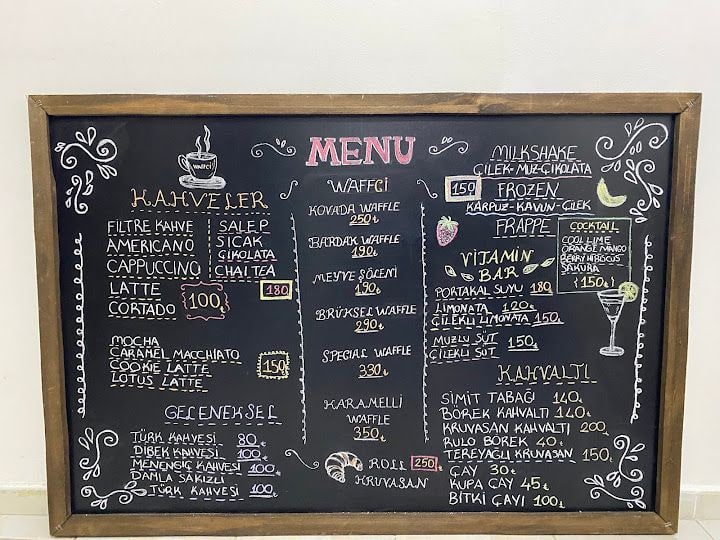 WAFFCİ
KAHVELER
FİLTRE KAHVE
AMERICANO
CAPPUCCINO
LATTE
CORTADO
100₺
SALEP
SICAK
ÇIKOLATA
CHAI TEA
180
MOCHA
CARAMEL MACCHIATO
COOKIE LATTE
LOTUS LATTE
150
GELENEKSEL
TÜRK KAHVESİ 80₺
DİBEK KAHVESİ 100₺
MENENGİÇ KAHVESİ 100₺
DAMLA SAKIZLI
TÜRK KAHVESİ 100₺
MENU
WAFFCİ
KOVADA WAFFLE
250₺
BARDAK WAFFLE
190₺
MEYVE ŞÖLENİ
190₺
BRÜKSEL WAFFLE
290₺
SPECIAL WAFFLE
330₺
KARAMELLİ
WAFFLE
350₺
ROLL 250₺
KRUVASAN
MILKSHAKE
ÇİLEK-MUZ-ÇİKOLATA
150 FROZEN
KARPUZ-KAVUN-ÇİLEK
FRAPPE
COCKTAIL
COOL LIME
ORANGE MANGO
BERRY HIBISCUS
SAKURA
150₺
VİTAMİN
BAR
PORTAKAL SUYU 180
LİMONATA 120₺
ÇİLEKLİ LİMONATA 150₺
MUZLU SÜT 150₺
ÇİLEKLİ SÜT
KAHVALTI
SİMİT TABAĞI 140₺
BÖREK KAHVALTI 140₺
KRUVASAN KAHVALTI 200₺
RULO BÖREK 40₺
TEREYAĞLI KRUVASAN 150₺
ÇAY 30₺
KUPA ÇAY 45₺
BİTKİ ÇAYI 100₺